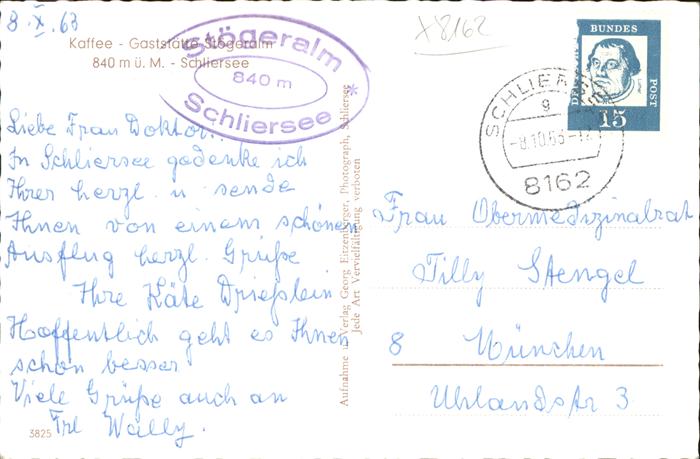 8.X.63
Kaffee - Gaststätte Stögeralm
840 m ü. M. - Schliersee
Stögeralm
840 m
Schliersee *
X 8162
BUNDES
POST
15
SCHLIER
g
-8.10.63-17
8162
Liebe Frau Doktor!
In Schliersee gedenke ich
Ihrer herzl. u. sende
Ihnen von einem schönen
Ausflug herzl. Grüße
Ihre Käte Drießlein
Hoffentlich geht es Ihnen
schon besser
Viele Grüße auch an
Frl Wally.
3825
Aufnahme u. Verlag Georg Eitzenberger, Photograph, Schliersee
Jede Art Vervielfältigung verboten
Frau Obermedizinalrat
Tilly Stengel
8 München
Uhlandstr 3